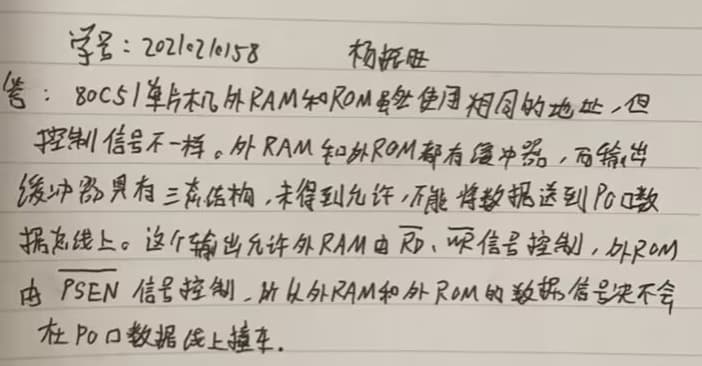 学号：20210210158 杨振旺
答：80C51单片机外RAM和ROM虽然使用相同的地址，但
控制信号不一样。外RAM和外ROM都有缓冲器，而输出
缓冲器具有三态结构，未得到允许，不能将数据送到P0口数
据总线上。这个输出允许外RAM由R̅D̅、W̅R̅信号控制，外ROM
由P̅S̅E̅N̅信号控制，所以外RAM和外ROM的数据信号决不会
在P0口数据线上撞车.